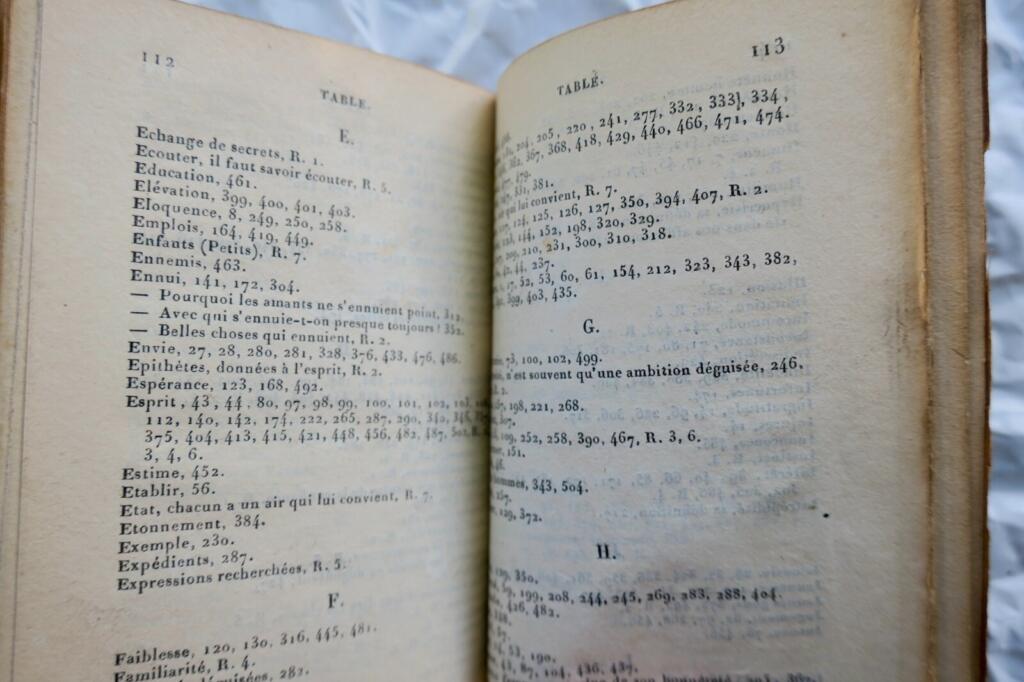 112
TABLE.
E.
Echange de secrets, R. 1.
Ecouter, il faut savoir écouter, R. 5.
Education, 461.
Elévation, 399, 400, 401, 403.
Eloquence, 8, 249, 250, 258.
Emplois, 164, 419, 449.
Enfants (Petits), R. 7.
Ennemis, 463.
Ennui, 141, 172, 304.
— Pourquoi les amants ne s'ennuient point, 312.
— Avec qui s'ennuie-t-on presque toujours! 352.
— Belles choses qui ennuient, R. 2.
Envie, 27, 28, 280, 281, 328, 376, 433, 476, 486.
Epithètes, données à l'esprit, R. 2.
Espérance, 123, 168, 492.
Esprit, 43, 44, 80, 97, 98, 99, 100, 101, 102, 103,
112, 140, 142, 174, 222, 265, 287, 290, 340,
375, 404, 413, 415, 421, 448, 456, 482, 487, 502,
3, 4, 6.
Estime, 452.
Etablir, 56.
Etat, chacun a un air qui lui convient, R. 7.
Etonnement, 384.
Exemple, 230.
Expédients, 287.
Expressions recherchées, R. 5.
F.
Faiblesse, 120, 130, 316, 445, 481.
Familiarité, R. 4.
déguisées, 282.
113
TABLE.
204, 205, 220, 241, 277, 332, 333, 334,
362, 367, 368, 418, 429, 440, 466, 471, 474.
477, 479.
331, 381.
qui lui convient, R. 7.
124, 125, 126, 127, 350, 394, 407, R. 2.
144, 152, 198, 320, 329.
209, 210, 231, 300, 310, 318.
42, 44, 237.
52, 53, 60, 61, 154, 212, 323, 343, 382,
399, 403, 435.
G.
73, 100, 102, 499.
n'est souvent qu'une ambition déguisée, 246.
2.
198, 221, 268.
307.
109, 252, 258, 390, 467, R. 3, 6.
151.
46.
hommes, 343, 504.
157.
129, 372.
H.
350.
199, 208, 244, 245, 269, 283, 288, 404.
426, 482.
53, 190.
87, 104, 436, 437.